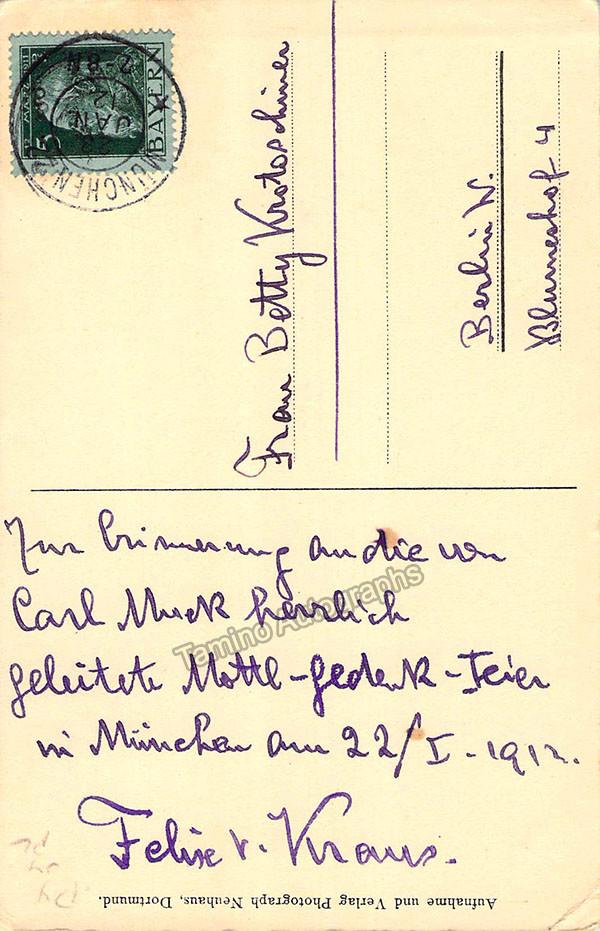 BAYERN
5
MÜNCHEN
28
JAN
12
7-8N
Frau Betty Krotoschiner
Berlin W.
Blumeshof 4
Zur Erinnerung an die von
Carl Muck herrlich
geleitete Mottl-Gedenk-Feier
in München am 22/I-1912.
Felix v. Kraus.
Tamino Autographs
Aufnahme und Verlag Photograph Neuhaus, Dortmund.